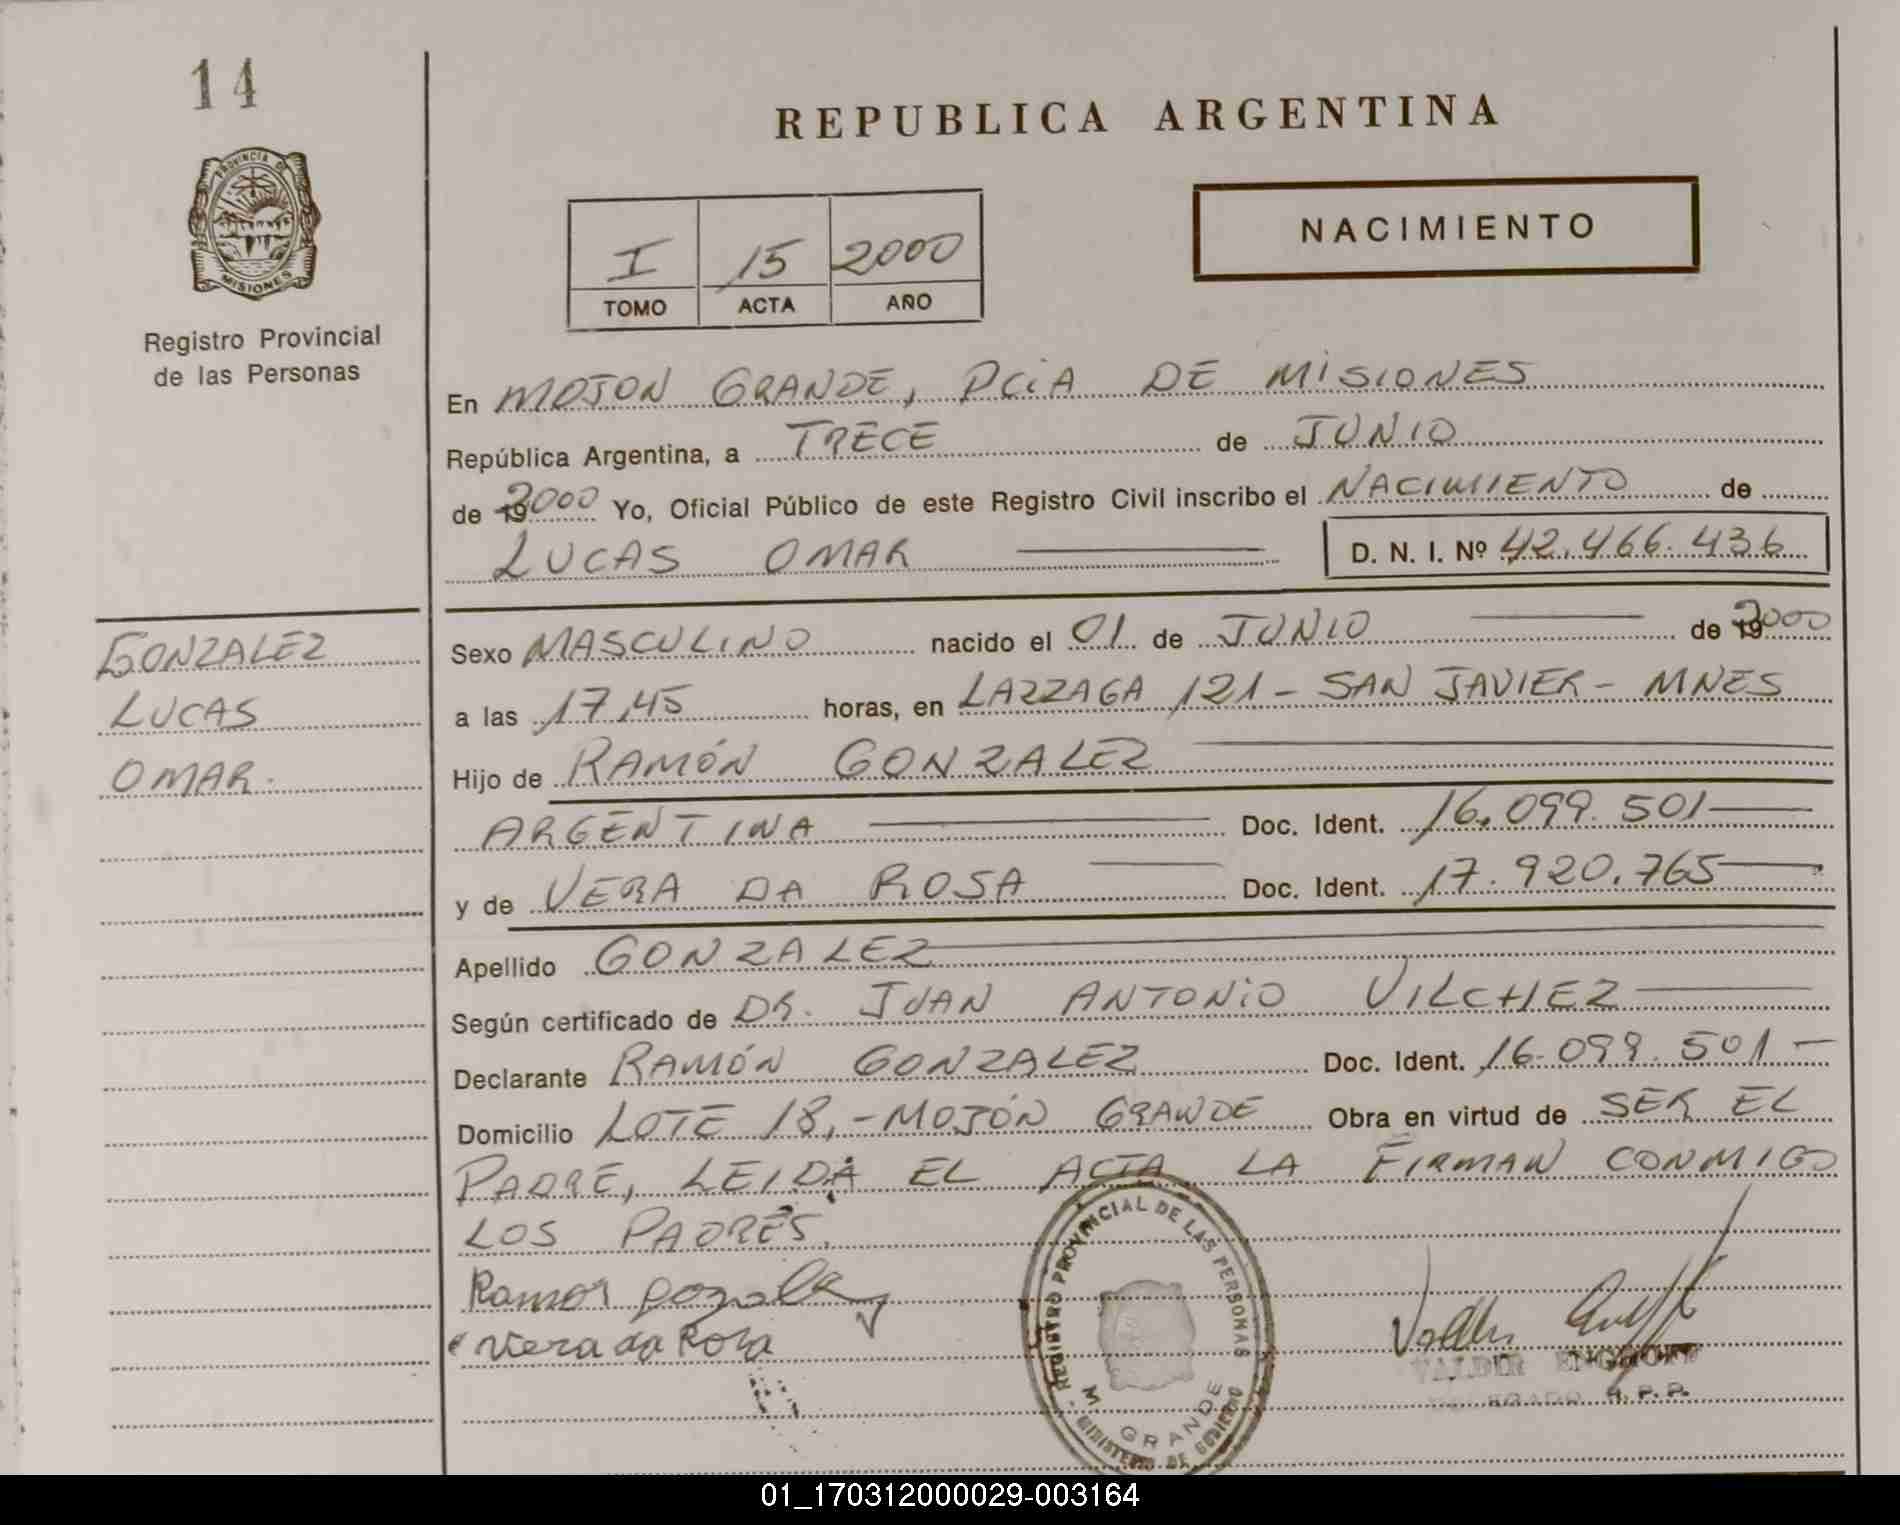 14
REPUBLICA ARGENTINA
PROVINCIA DE
MISIONES
Registro Provincial
de las Personas
NACIMIENTO
I 15 2000
TOMO ACTA AÑO
En MOJON GRANDE, PCIA DE MISIONES
República Argentina, a TRECE de JUNIO
de 2000 Yo, Oficial Público de este Registro Civil inscribo el NACIMIENTO de
LUCAS OMAR D. N. I. Nº 42.466.436
GONZALEZ
LUCAS
OMAR.
Sexo MASCULINO nacido el 01 de JUNIO de 2000
a las 17,45 horas, en LAZZAGA 121 - SAN JAVIER - MNES
Hijo de RAMÓN GONZALEZ
ARGENTINA Doc. Ident. 16.099.501
y de VERA DA ROSA Doc. Ident. 17.920.765
Apellido GONZALEZ
Según certificado de DR. JUAN ANTONIO VILCHEZ
Declarante RAMÓN GONZALEZ Doc. Ident. 16.099.501 -
Domicilio LOTE 18, - MOJÓN GRANDE Obra en virtud de SER EL
PADRE, LEIDA EL ACTA LA FIRMAN CONMIGO
LOS PADRES.
Ramon gonzalez
Vera da Rosa
REGISTRO PROVINCIAL DE LAS PERSONAS
M. GRANDE
MINISTERIO DE GOBIERNO
VALDIR
DELEGADO R. P. P.
01_170312000029-003164